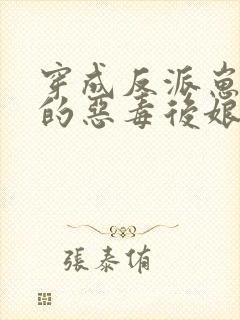 穿成反派崽
的惡毒後娘
張泰侑